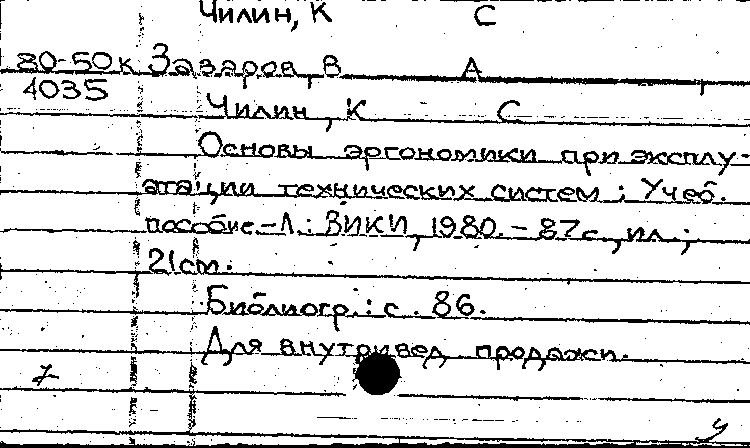 Чилин, К С
80-50к Зазаров, В А
4035
Чилин, К С
Основы эргономики при эксплу-
атации технических систем; Учеб.
пособие.-Л.: ВИКИ, 1980.-87с., ил.;
21см.
Библиогр.: с. 86.
Для внутривед продажи.